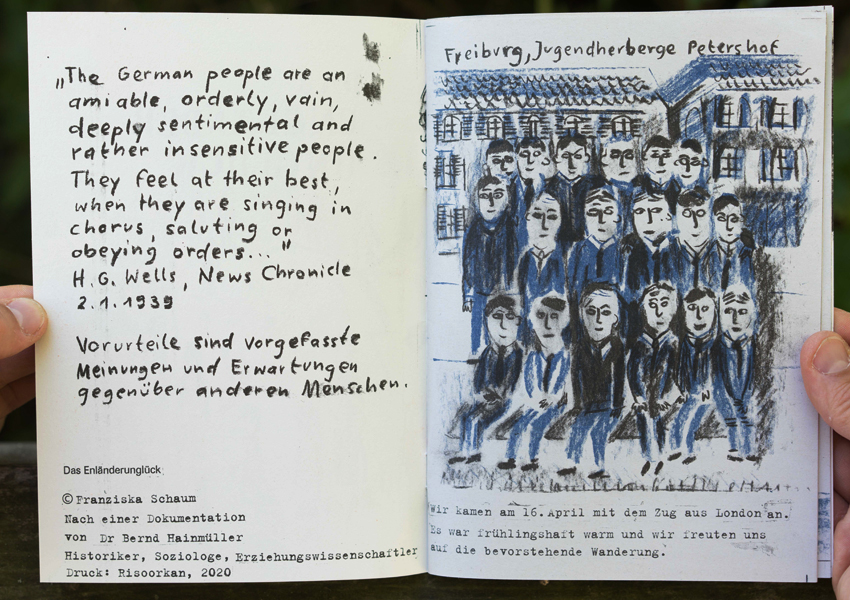 „The German people are an
amiable, orderly, vain,
deeply sentimental and
rather insensitive people.
They feel at their best,
when they are singing in
chorus, saluting or
obeying orders..."
H.G. Wells, News Chronicle
2.1.1939
Vorurteile sind vorgefasste
Meinungen und Erwartungen
gegenüber anderen Menschen.
Das Enländerunglück
© Franziska Schaum
Nach einer Dokumentation
von Dr Bernd Hainmüller
Historiker, Soziologe, Erziehungswissenschaftler
Druck: Risoorkan, 2020
Freiburg, Jugendherberge Petershof
Wir kamen am 16. April mit dem Zug aus London an.
Es war frühlingshaft warm und wir freuten uns
auf die bevorstehende Wanderung.